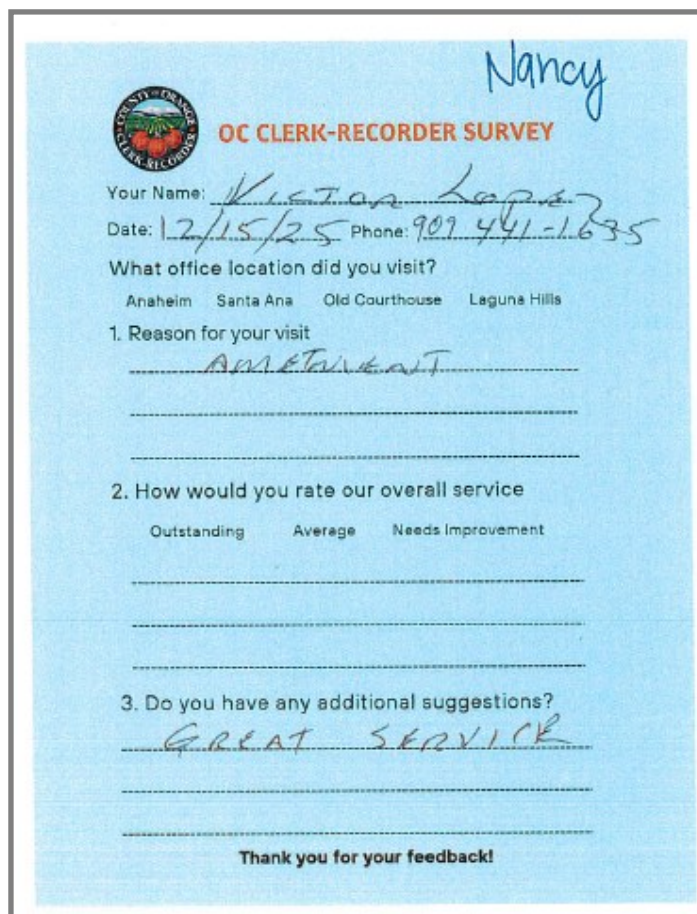 Nancy
COUNTY OF ORANGE
CLERK-RECORDER
OC CLERK-RECORDER SURVEY
Your Name: Victor Lopez
Date: 12/15/25 Phone: 909 441-1635
What office location did you visit?
Anaheim Santa Ana Old Courthouse Laguna Hills
1. Reason for your visit
AMETNMENT
2. How would you rate our overall service
Outstanding Average Needs Improvement
3. Do you have any additional suggestions?
GREAT SERVICE
Thank you for your feedback!